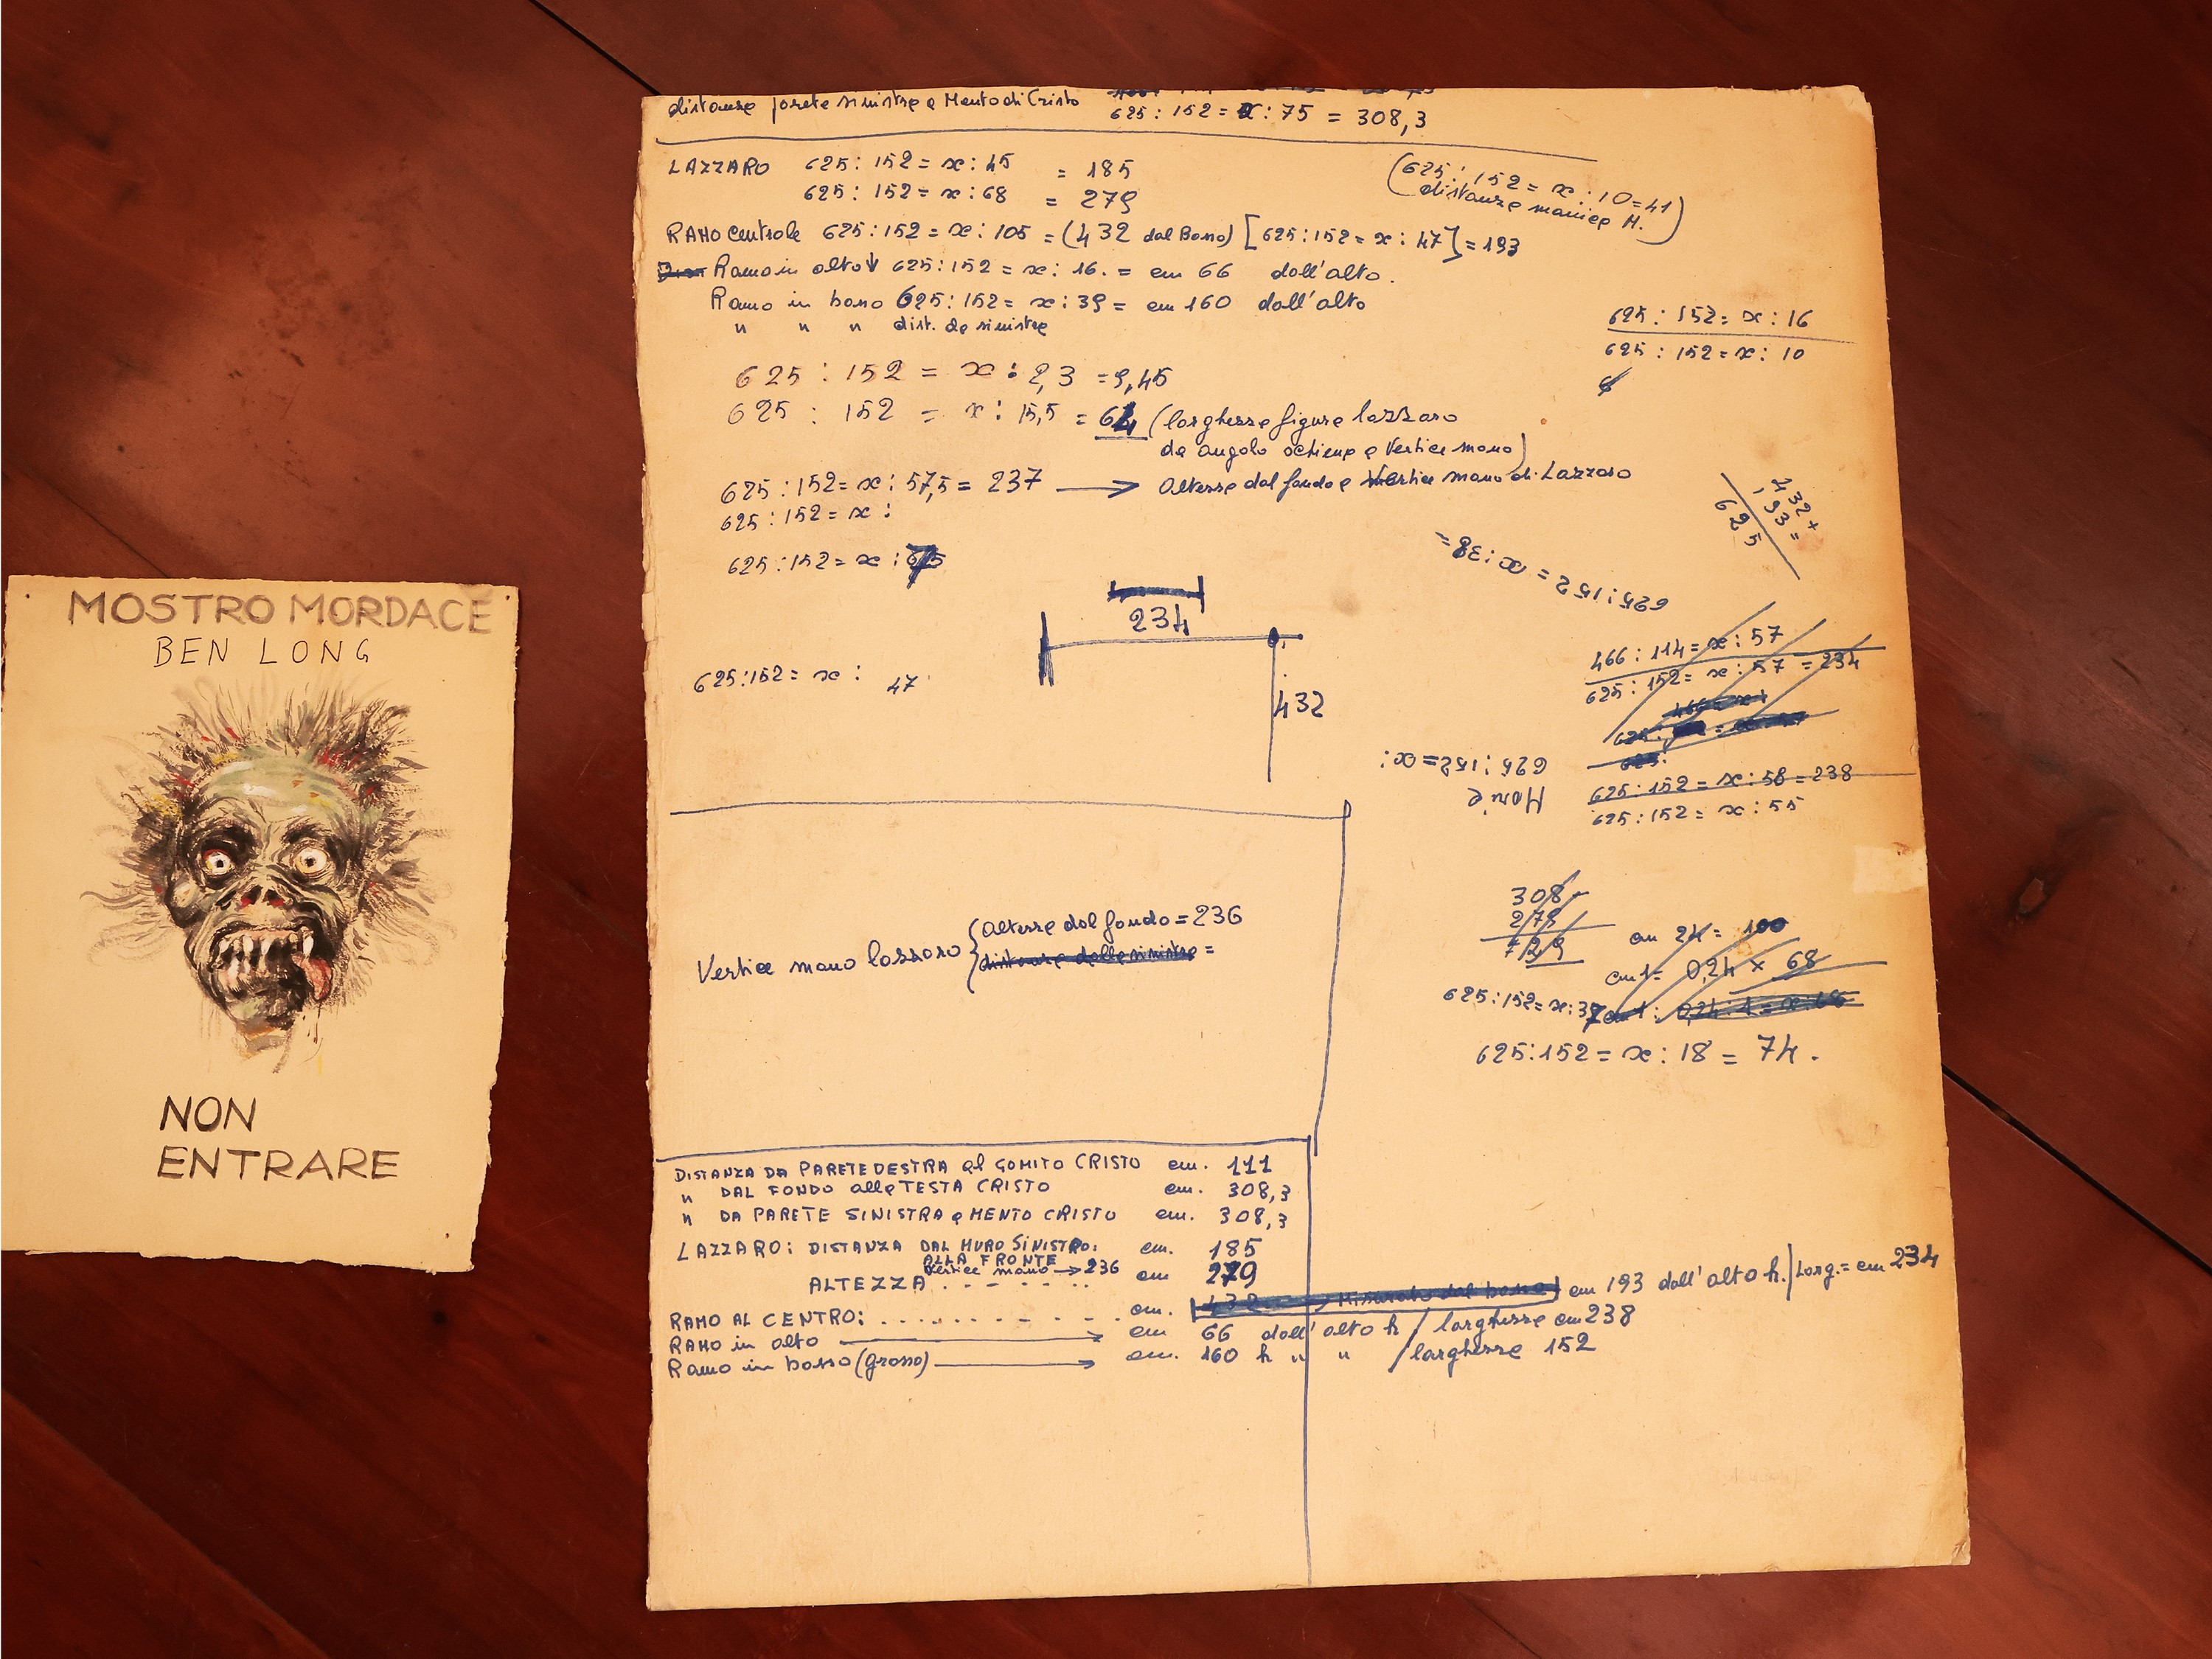 MOSTRO MORDACE
BEN LONG
NON
ENTRARE
distanze parete sinistre e Mento di Cristo 625 : 152 = x : 75 = 308,3
LAZZARO 625 : 152 = x : 45 = 185
625 : 152 = x : 68 = 279
(625 : 152 = x : 10 = 41
distanze M.)
RAMO Centrole 625 : 152 = x : 105 = (432 dal Basso) [625 : 152 = x : 47] = 193
Ramo in alto ↓ 625 : 152 = x : 16. = cm 66 dall'alto.
Ramo in basso 625 : 152 = x : 39 = cm 160 dall'alto
" " " dist. da sinistre
625 : 152 = x : 16
625 : 152 = x : 10
625 : 152 = x : 2,3 = 9,45
625 : 152 = x : 15,5 = 64 (larghezze figure lazzaro
da angolo e Vertice mano)
625 : 152 = x : 57,5 = 237 → Altezze dal fondo e Vertice mano di Lazzaro
625 : 152 = x :
432 +
193 =
625
625 : 152 = x :
625 : 152 = x : 38 =
234
432
625 : 152 = x : 47
466 : 114 = x : 57
625 : 152 = x : 57 = 234
625 : 152 = x :
625 : 152 = x : 58 = 238
625 : 152 = x : 55
Vertice mano lazzaro { altezze dal fondo = 236
distanze dalle sinistre =
308 -
279
29
cm 24 = 100
cm 1 = 0,24 x 68
625 : 152 = x : 37
625 : 152 = x : 18 = 74.
DISTANZA DA PARETE DESTRA al GOMITO CRISTO cm. 111
" DAL FONDO alle TESTA CRISTO cm. 308,3
" DA PARETE SINISTRA e MENTO CRISTO cm. 308,3
LAZZARO: DISTANZA DAL MURO SINISTRO: cm. 185
ALLA FRONTE
Vertice mano → 236
ALTEZZA . - - - - . . cm 279
RAMO AL CENTRO: . . . . . . . cm. 432 Misurato dal basso cm 193 dall'alto h. / Larg. = cm 234
RAMO in alto → cm 66 dall'alto h / larghezze cm 238
Ramo in basso (grosso) → cm. 160 h " " / larghezze 152